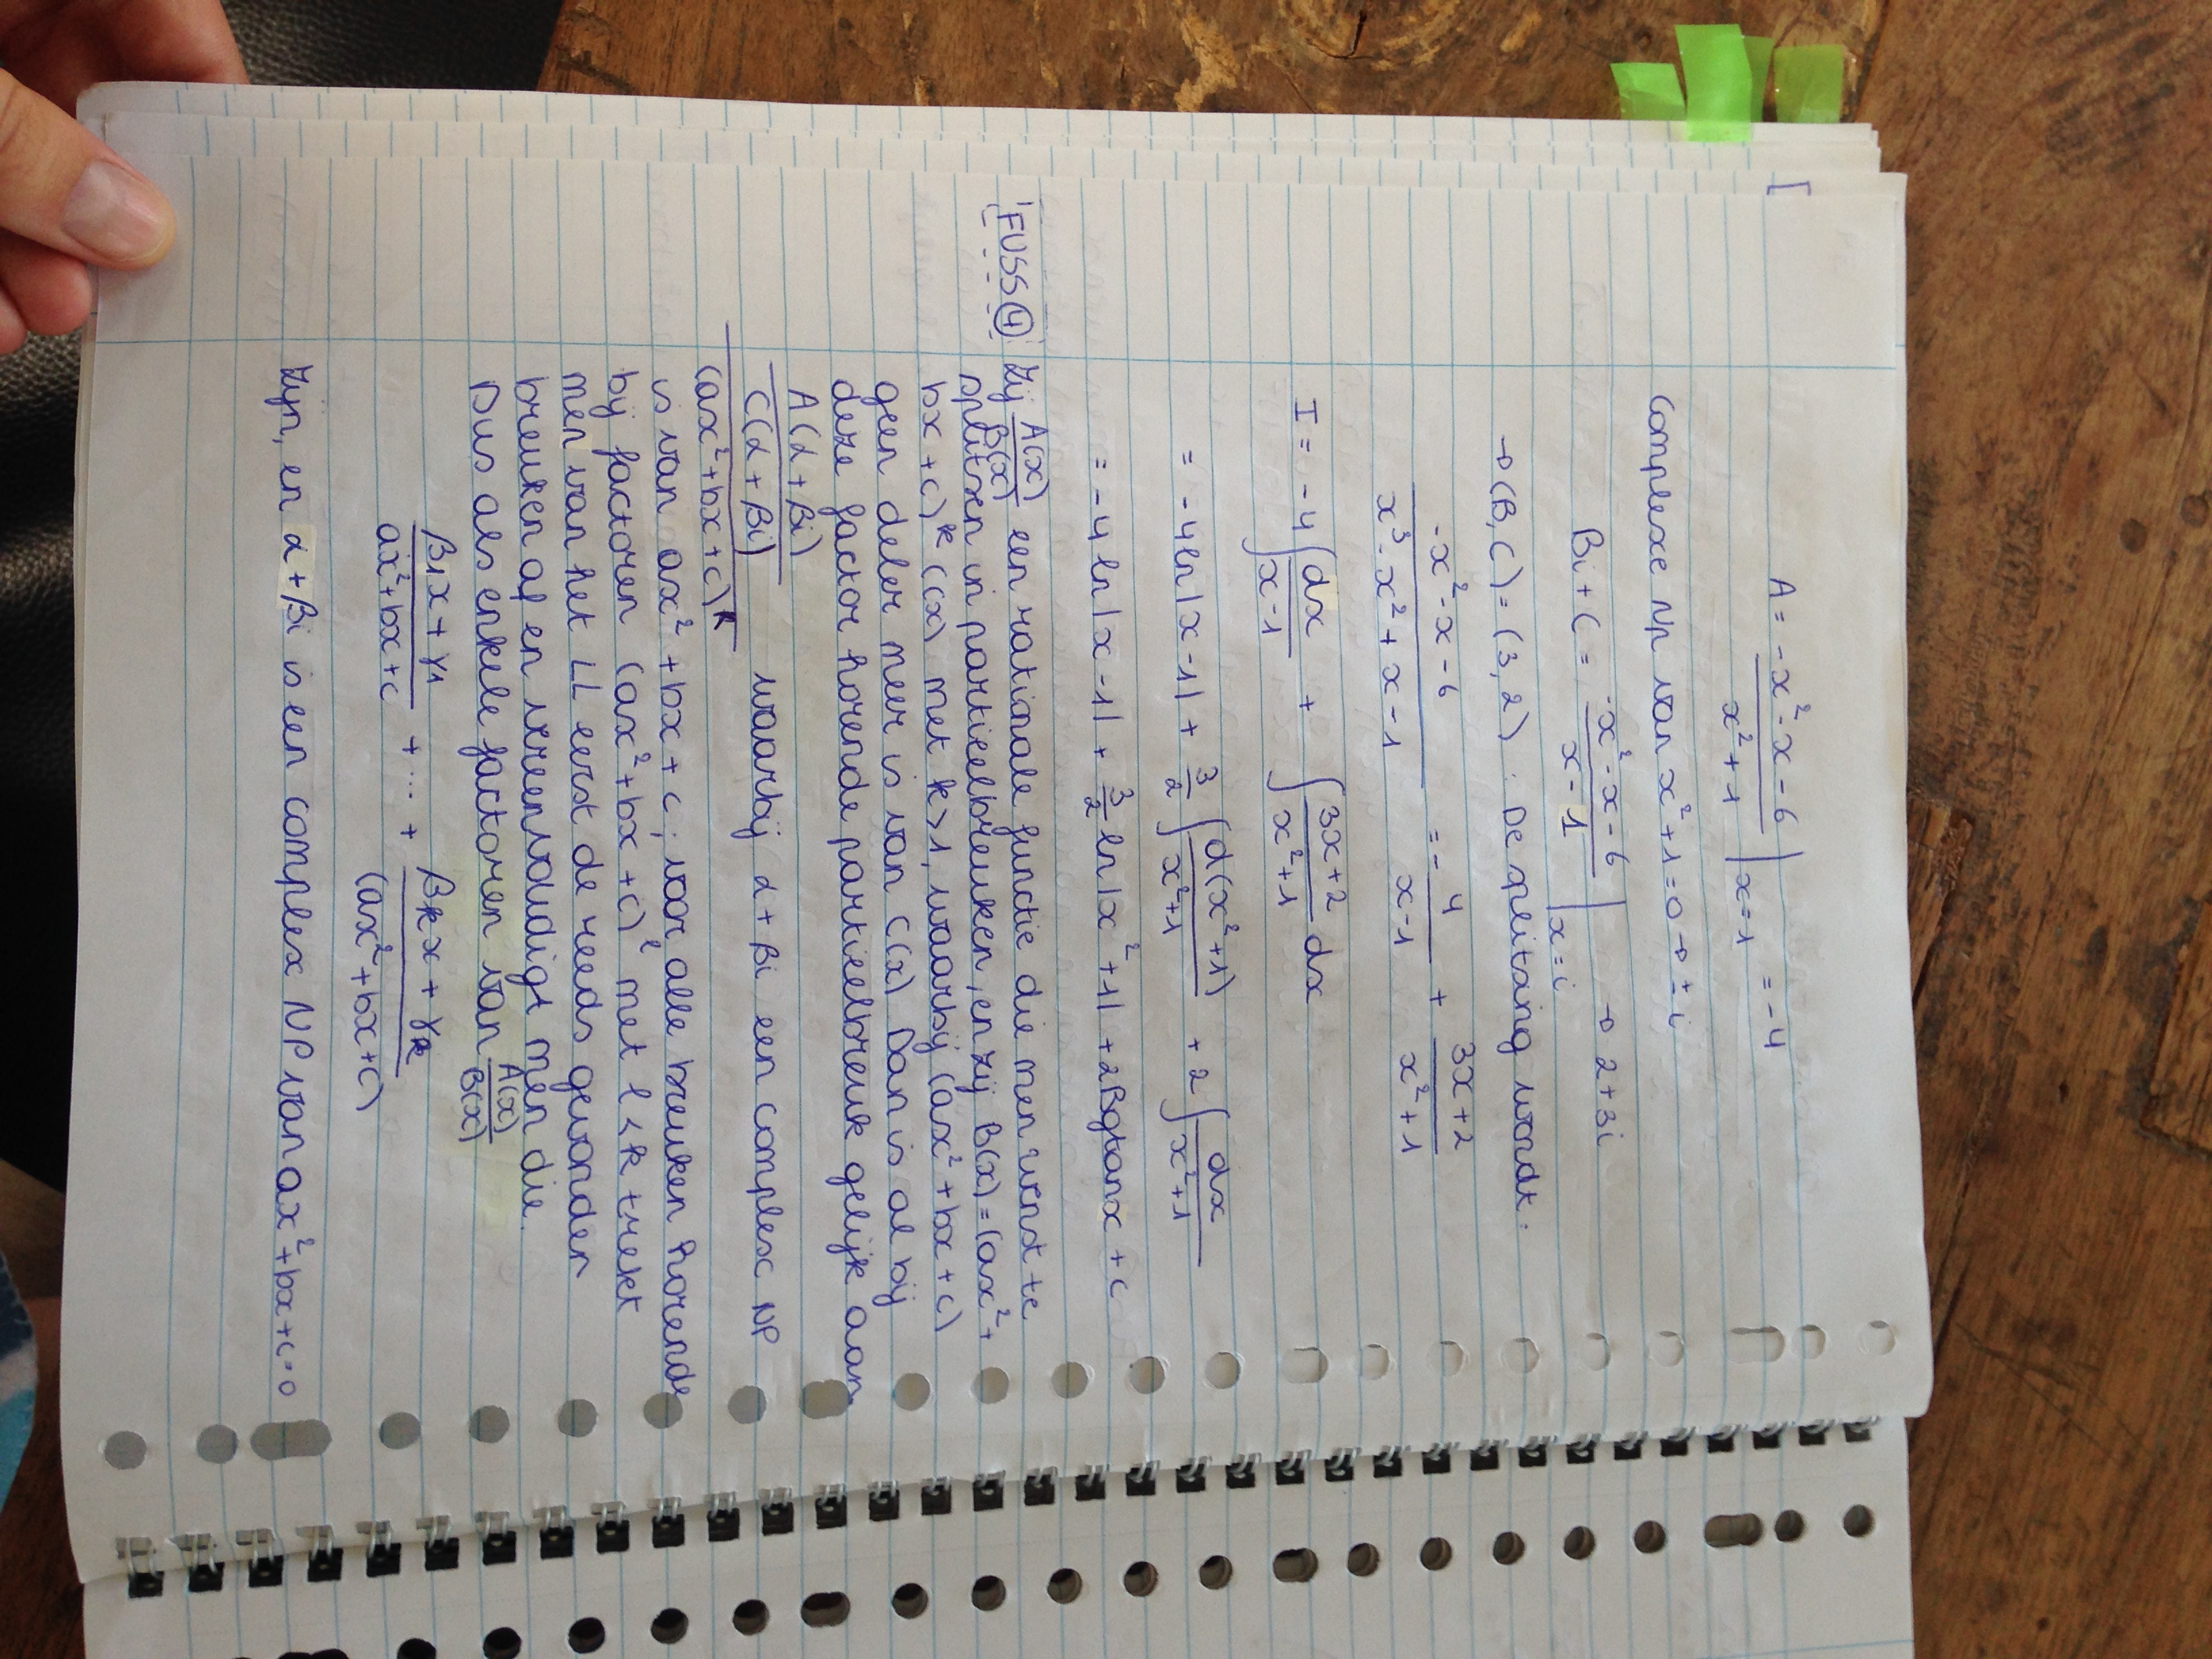 [
A = -x² - x - 6 / x² + 1 | x = 1 = -4
Complexe Np van x² + 1 = 0 → ± i
Bi + C = -x² - x - 6 / x - 1 | x = i → 2 + 3i
→ (B, C) = (3, 2) : De splitsing wordt.
-x² - x - 6 / x³ - x² + x - 1 = - 4 / x - 1 + 3x + 2 / x² + 1
I = -4 ∫ dx / x - 1 + ∫ 3x + 2 / x² + 1 dx
= -4 ln|x - 1| + 3/2 ∫ d(x² + 1) / x² + 1 + 2 ∫ dx / x² + 1
= -4 ln|x - 1| + 3/2 ln|x² + 1| + 2Bgtanx + c
FUSS ④ Zij A(x)/B(x) een rationale functie die men wenst te
splitsen in partieelbreuken, en zij B(x) = (ax² +
bx + c)ᵏ C(x) met k > 1, waarbij (ax² + bx + c)
geen deler meer is van C(x) Dan is al bij
deze factor horende partieelbreuk gelijk aan
A(α + βi) / C(α + βi) / (ax² + bx + c)ᵏ waarbij α + βi een complex NP
is van ax² + bx + c ; voor alle breuken horende
bij factoren (ax² + bx + c)ˡ met l < k trekt
men van het LL eerst de reeds gevonden
breuken af en vereenvoudigt men die.
Dus als enkele factoren van A(x)/B(x)
β₁x + γ₁ / ax² + bx + c + ... + βₖx + γₖ / (ax² + bx + c)
Zijn, en α + βi is een complex NP van ax² + bx + c = 0